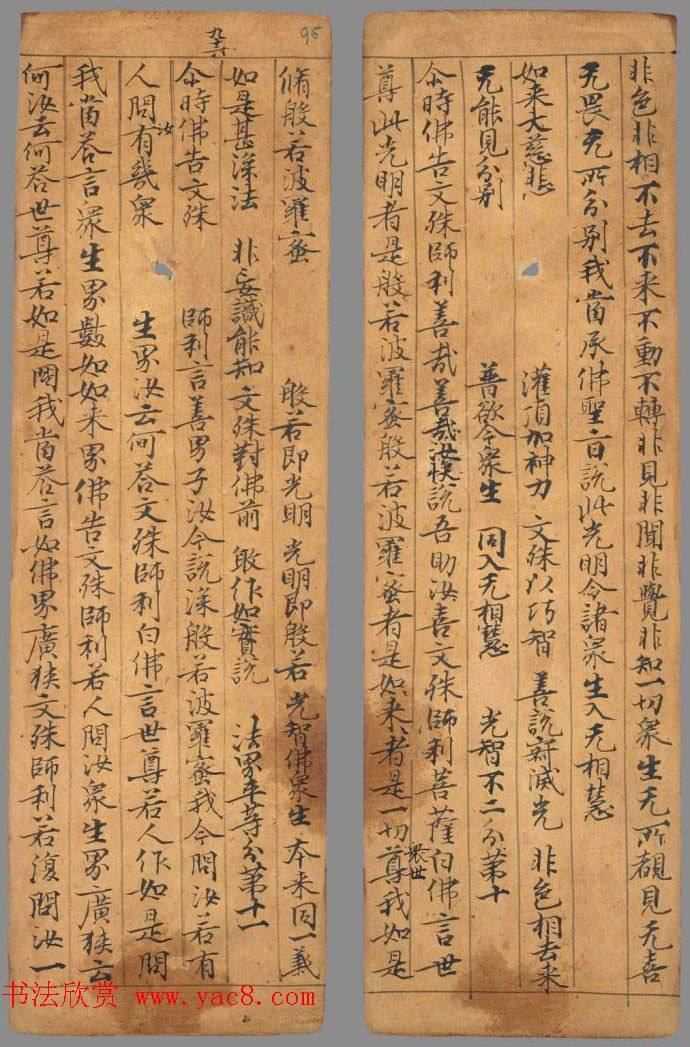 非色非相不去不来不動不轉非見非聞非覺非知一切衆生无所覩見无喜
无畏无所分别我當承佛聖旨説此光明令諸衆生入无相慧
如来大慈悲 灌頂加神力 文殊以巧智 善説寂滅光 非色相去来
无能見分别 普欲令衆生 同入无相慧 光智不二分第十
尒時佛告文殊師利善哉善哉汝快説吾助汝喜文殊師利菩薩白佛言世
尊此光明者是般若波羅蜜般若波羅蜜者是如来々者是一切衆世尊我如是
96
脩般若波羅蜜 般若即光明 光明即般若 光智佛衆生 本来同一義
如是甚深法 非妄識能知 文殊對佛前 敢作如實説 法界平等分第十一
尒時佛告文殊師利言善男子汝今説深般若波羅蜜我今問汝若有
人問汝有幾衆生界汝云何荅文殊師利白佛言世尊若人作如是問
我當荅言衆生界數如如来界佛告文殊師利若人問汝衆生界廣狹云
何汝云何荅世尊若如是問我當荅言如佛界廣狹文殊師利若復問汝一
书法欣赏 www.yac8.com